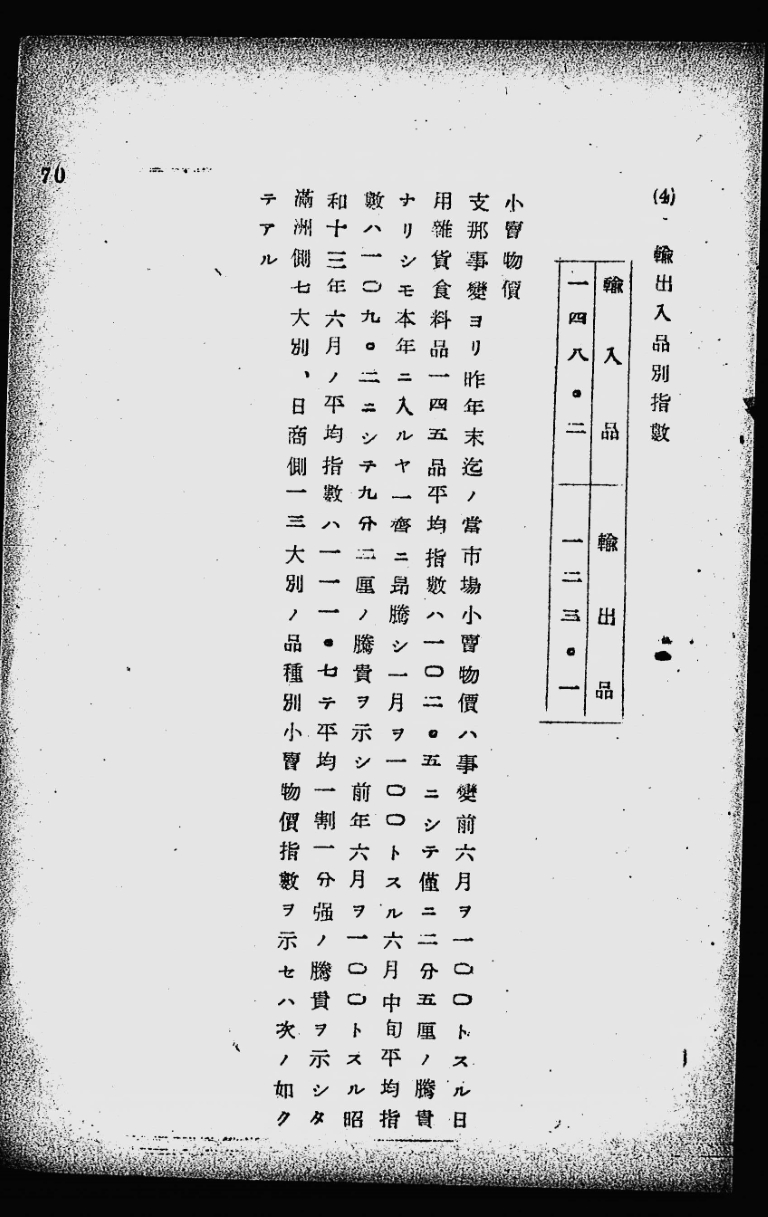 (4) 輸出入品別指數
輸入品 輸出品
一四八。二 一二三。一
小賣物價
支那事變ヨリ昨年末迄ノ當市場小賣物價ハ事變前六月ヲ一〇〇トスル日
用雜貨食料品一四五品平均指數ハ一〇二。五ニシテ僅ニ二分五厘ノ騰貴
ナリシモ本年ニ入ルヤ一齊ニ昂騰シ一月ヲ一〇〇トスル六月中旬平均指
數ハ一〇九。二ニシテ九分二厘ノ騰貴ヲ示シ前年六月ヲ一〇〇トスル昭
和十三年六月ノ平均指數ハ一一一。七テ平均一割一分强ノ騰貴ヲ示シタ
滿洲側七大別、日商側一三大別ノ品種別小賣物價指數ヲ示セハ次ノ如ク
テアル
70